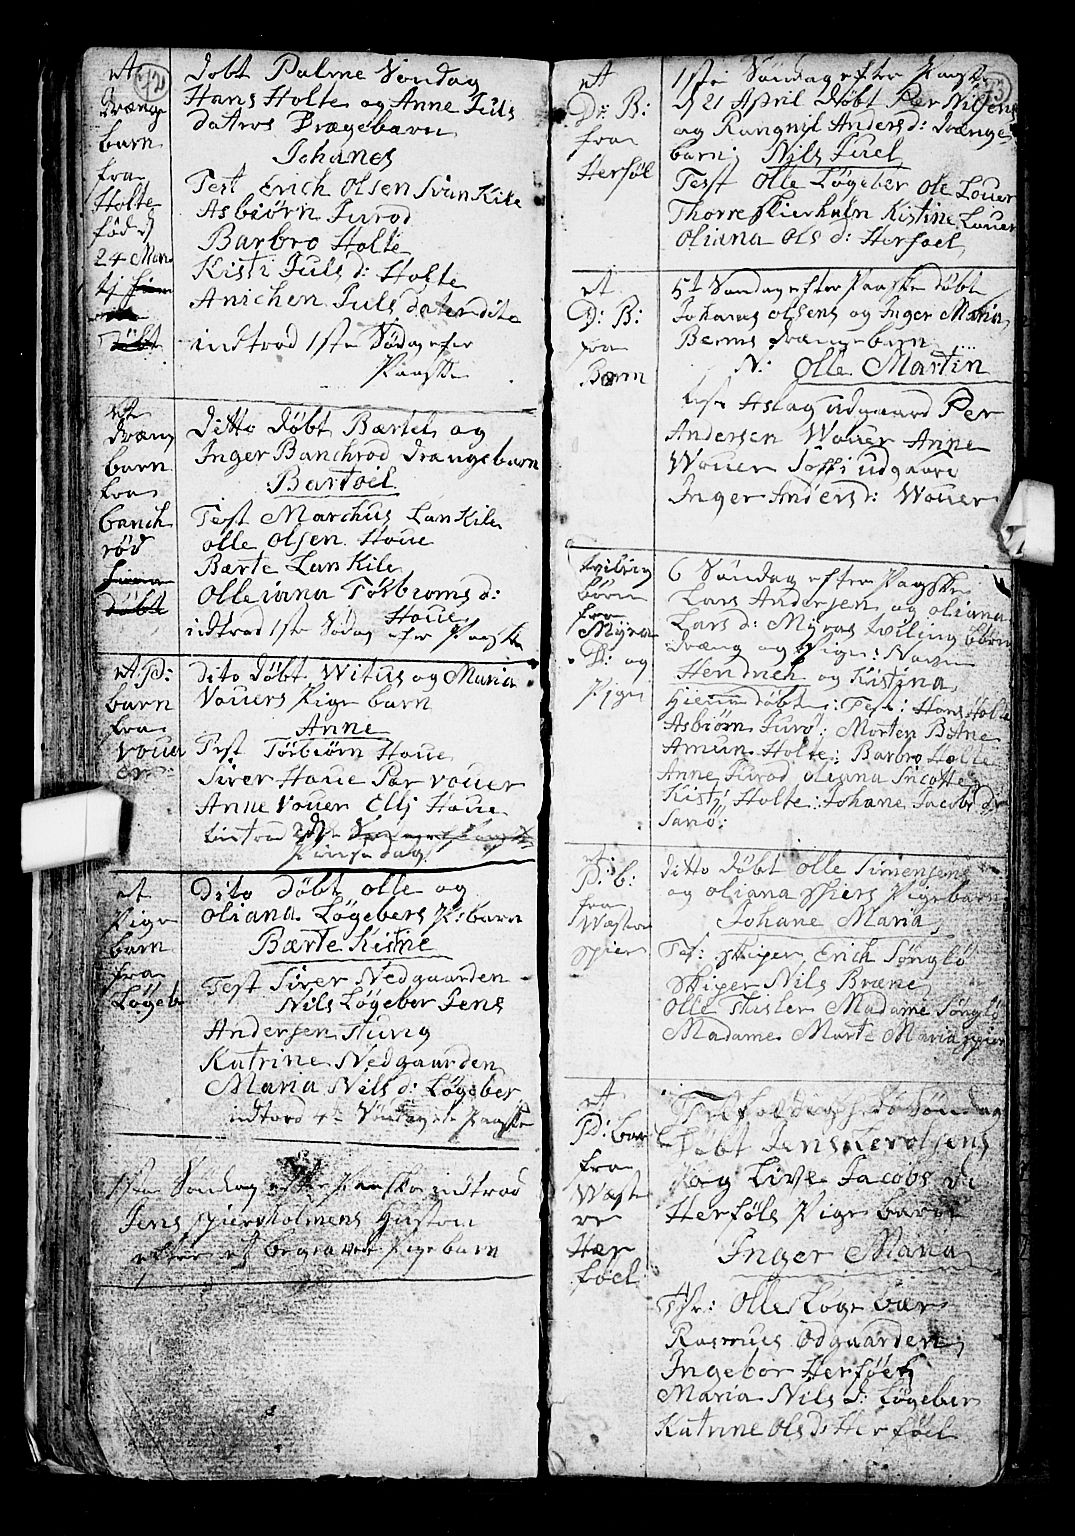 72
et
drænge
barn
fra
Holte
fød d
24 Mar
tj
døbt
Døbt Palme Søndag
Hans Holte og Anne Juls
datros Drægebarn
Johanes
Test Erich Olsen Svan Kile
Asbiørn Jurod
Barbro Holte
Kisti Juls d: Holte
Anichen Juls daterdito
indtrod 1ste Södag efter
Paaske
et
dræng
barn
fra
banch
rød
døbt
Ditto Døbt Bærtel og
Inger Banchrod Drangebarn
Bartoel
Test Marchus Lan Kile
olle olsen Houe
Bærte Lan Kile
Olleiana Törbioms d:
Houe
indtrad 1ste Sødag efter Paaske
et P:
barn
fra
Vouer
er
Dito Døbt Witus og Maria
Vouers Pige barn
Anne
Test Törbiørn Houe
Sirer Houe Par Vouer
Anne Vouer Ellj Houe
intro 2den
Pinsedag
et
Pige
barn
fra
Løgeb
Dito Døbt olle og
oliana Løgebers P: barn
Bærte Kistine
Test Sirer Nedgaarden
Nils Løgeber Jens
Andersen Hurig
Katrine Nedgaarden
Maria Nils d: Løgeber
indtord 4de Söndag efter Paaske
1ste Søndag efter Paaske indtrod
Jens Spiersholmens Huston
efter et begravet Pigebarn
73
et
Dr: B:
fra
Herföl
1ste Søndag efter Paaske
d 21 April Døbt Per Nilsens
og Rangnil Anders d: drænge
barn: Nils Juel
Test Olle Løgeber Ole Louer
Thorre Skierholm Kistine Louer
Oliana Ols d: Herfoel
et
D: B:
fra
Barm
5te Søndag efter Paaske døbt
Johanes Olsens og Inger Maria
Berms drængebarn
N: Olle Martin
Test Aslag udgaard Per
Andersen Wouer Anne
Wouer Soffi udgaard
Inger Anders d: Wouer
tviling
börn
fra
Myra
D: og
Pige
6 Søndag efter Paaske
Lars Andersen og oliana
Lars d: Myras tviling börn
Dræng og Pige: Navn
Hendrich og Kistina
Hiemmedøbt: Test: Hans Holte
Asbiørn Jurø: Morten Botne
Amun Holte: Barbro Holte
Anne Jurod oliana
Kistj Holte: Johane Jacobs d:
Sanø:
et
P: b:
fra
Wæstre
spier
ditto døbt olle Simensens
og oliana Spiers Pigebarn
Johane Maria
Tes: Skiper Erich Sönglö
Skiper Nils Bræne
Olle Thisler Madame Sönglö
Madame Marte Maria Spier
et
P: bar
fra
Wæst
re
Hær
föel
Trefoldighed Søndag
Døbt Jens Terolsens
og Live Jacobs d:
Herföls Pige barn
Inger Maria
Tes: Olle Løgebær
Rasmus Odgaarden
Ingebor Herföel
Maria Nils d: Løgeber
Katrine Ols d: Herföel